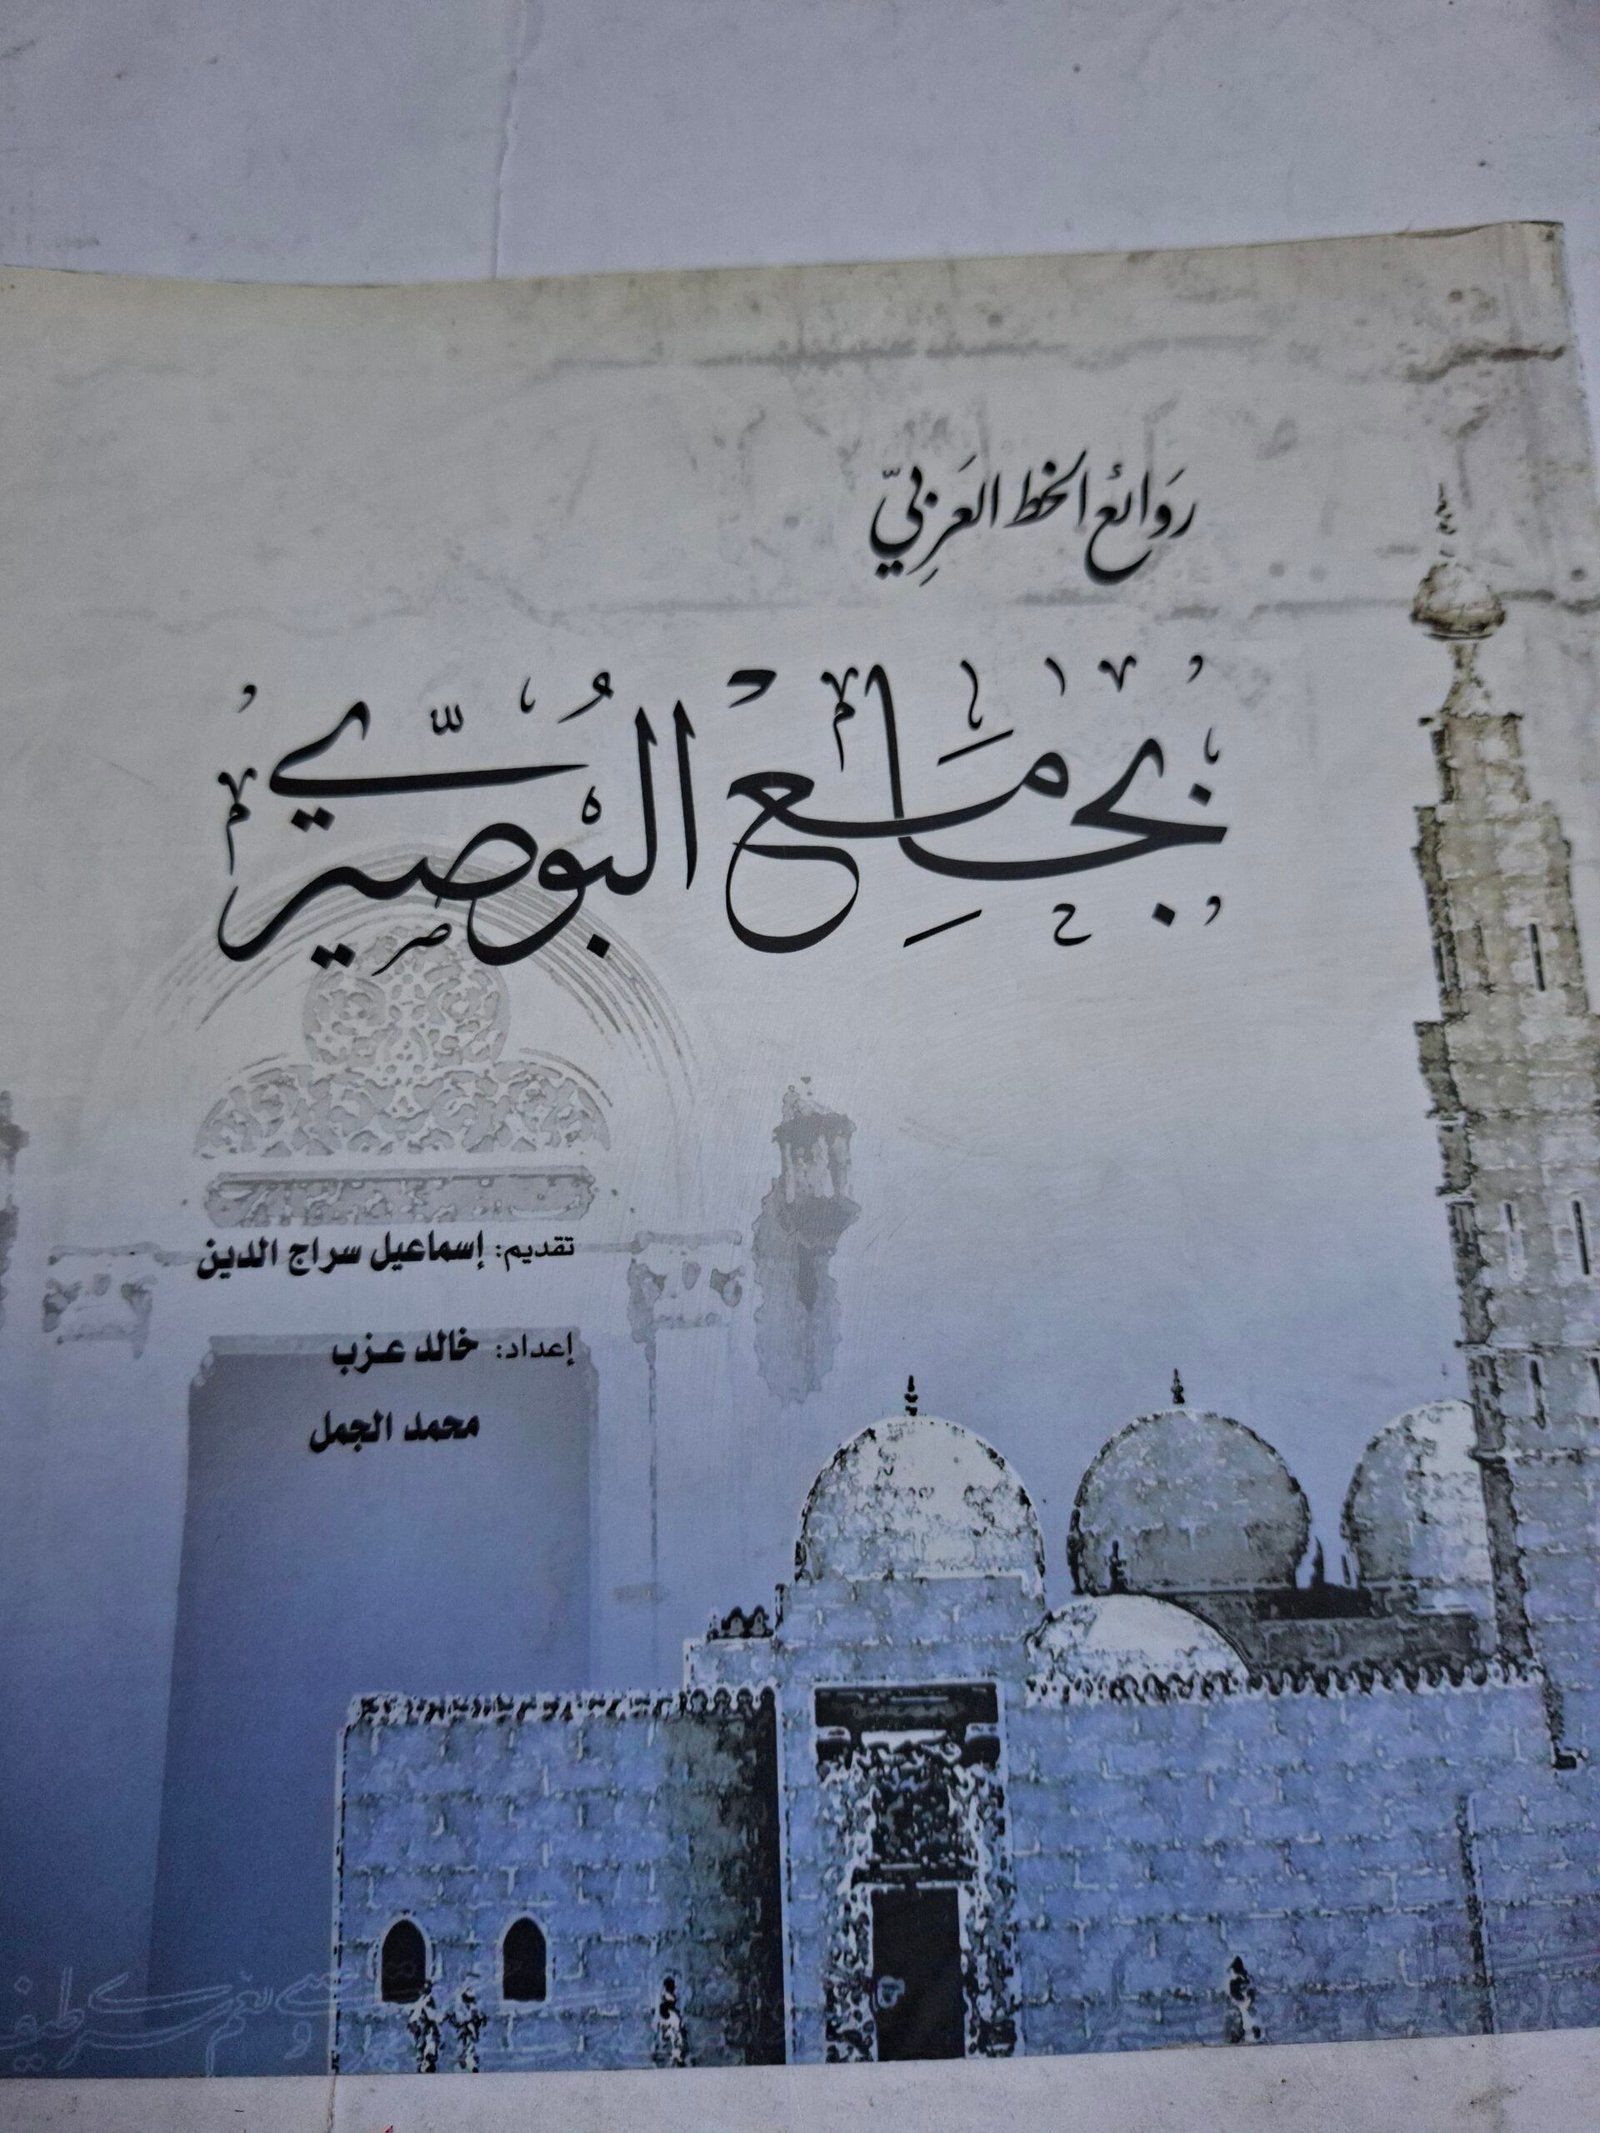 رَوَائع الخط العَرَبيّ
بجَامِع البُوصِيرِيّ
تقديم: إسماعيل سراج الدين
إعداد: خالد عزب
محمد الجمل